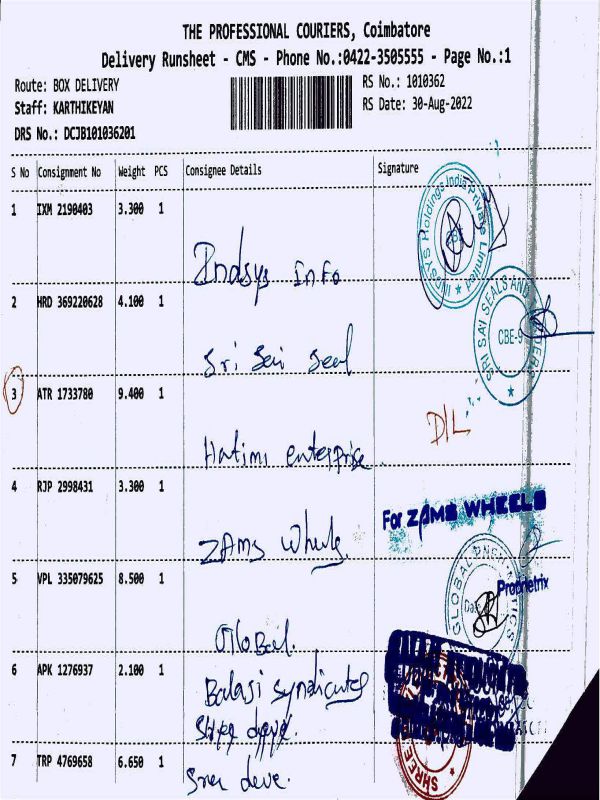 THE PROFESSIONAL COURIERS, Coimbatore
Delivery Runsheet - CMS - Phone No.:0422-3505555 - Page No.:1
Route: BOX DELIVERY
RS No.: 1010362
Staff: KARTHIKEYAN
RS Date: 30-Aug-2022
DRS No.: DCJB101036201
S No Consignment No Weight PCS Consignee Details Signature
1 IXM 2190403 3.300 1
Indsys Info
INDSYS Holdings India Private Limited
CBE
2 HRD 369220628 4.100 1
Sri Sai Seal
SRI SAI SEALS AND
CBE-9
3 ATR 1733780 9.400 1
D/L
Hatimi enterprise
4 RJP 2998431 3.300 1
For ZAMS WHEELS
ZAms Wheels
Proprietrix
5 VPL 335079625 8.500 1
GLOBAL
Global
6 APK 1276937 2.100 1
Balaji Syndicates
Shree
7 TRP 4769658 6.650 1
SHREE
deve.